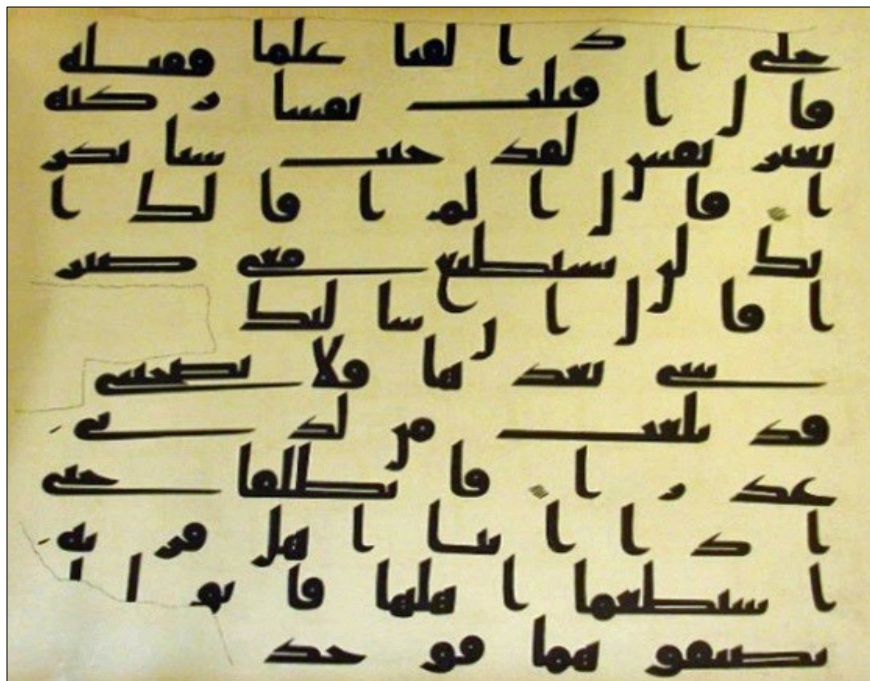 حتى اذا لقيا غلما فقتله
قال اقتلت نفسا زكية
بغير نفس لقد جيت شيا نكر
ا قال الم اقل لك ا
نك لن تستطيع معي صبر
ا قال ان سالتك
شي بعدها فلا تصحبني
قد بلغت من لدني
عذرا فانطلقا حتى
اذا اتيا اهل قرية
استطعما اهلها فابوا ا
يضيفوهما فوجد